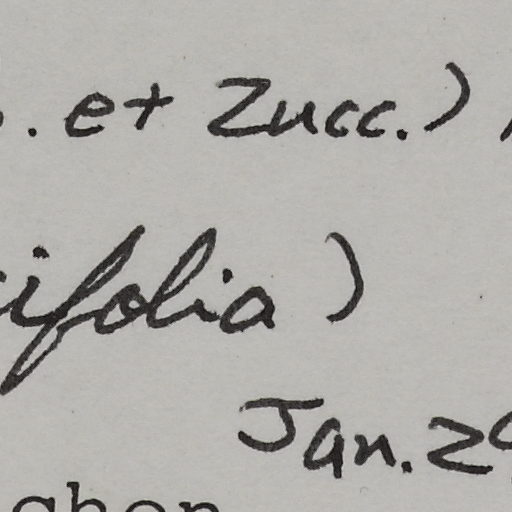 . et Zucc.)
ifolia)
Jan. 2
ghen